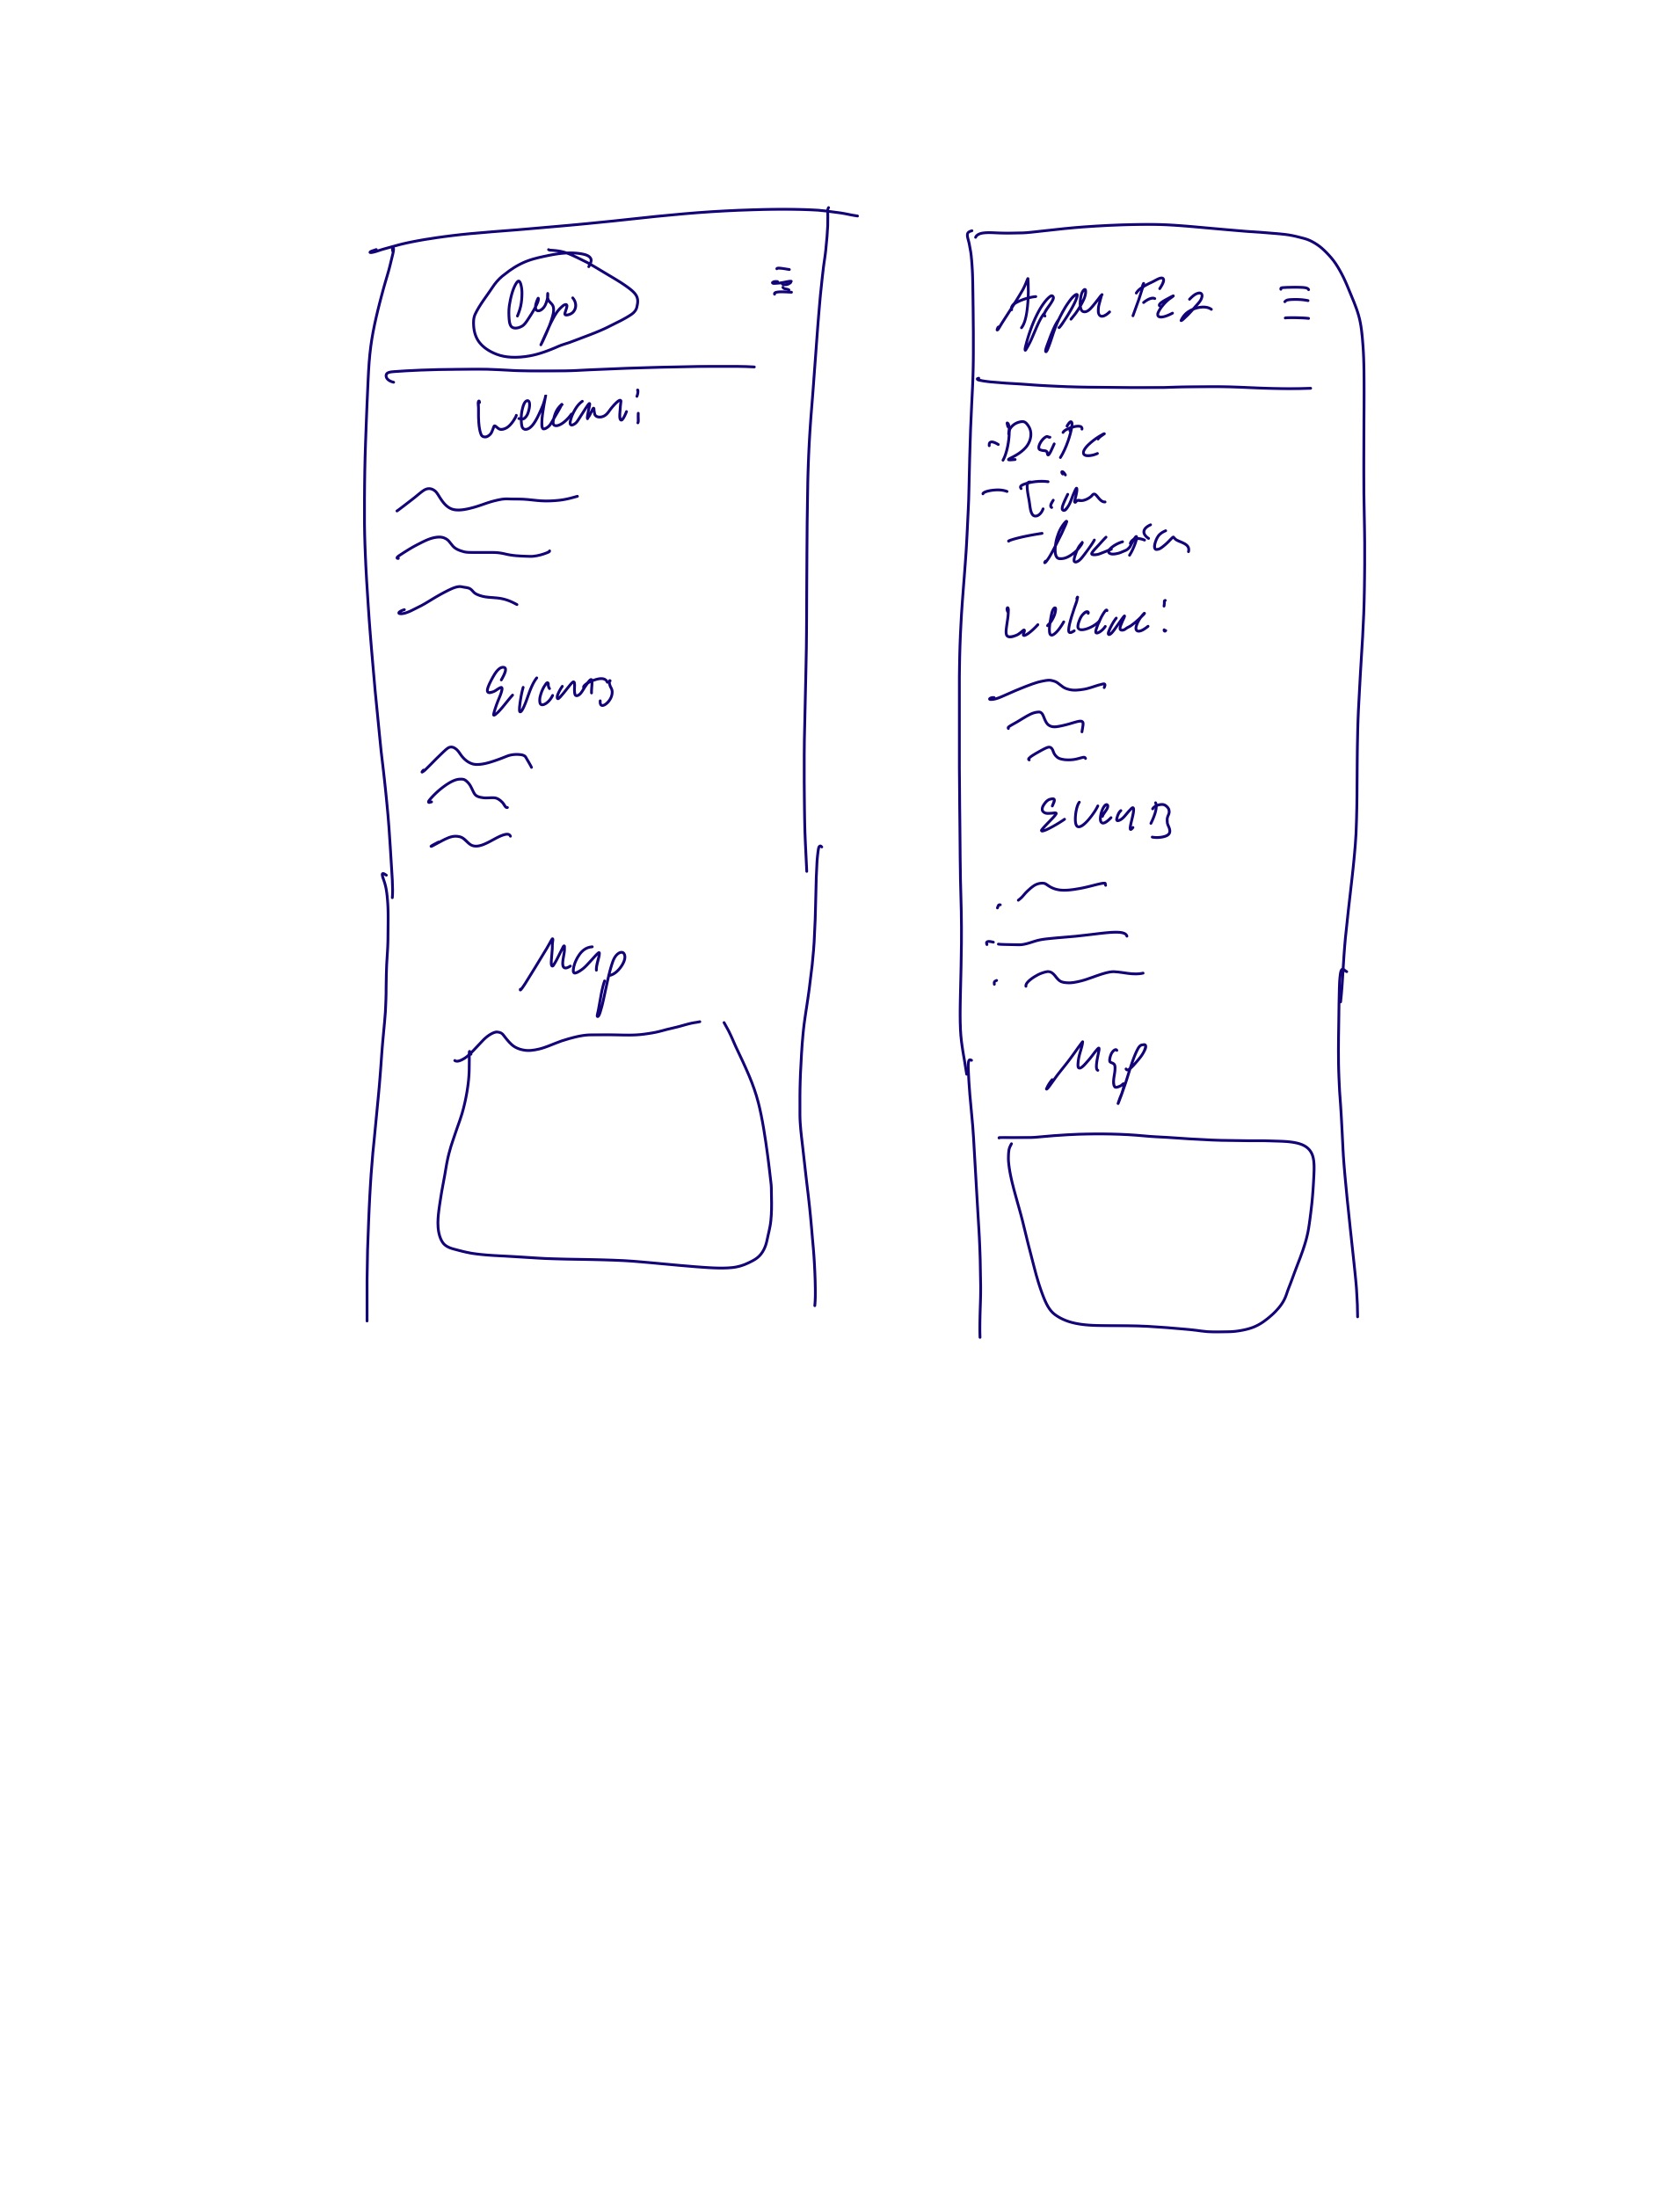 Welcome:
Events
Map
Apple Fez
- Date
- Time
- Location
Welcome:
Events
Map